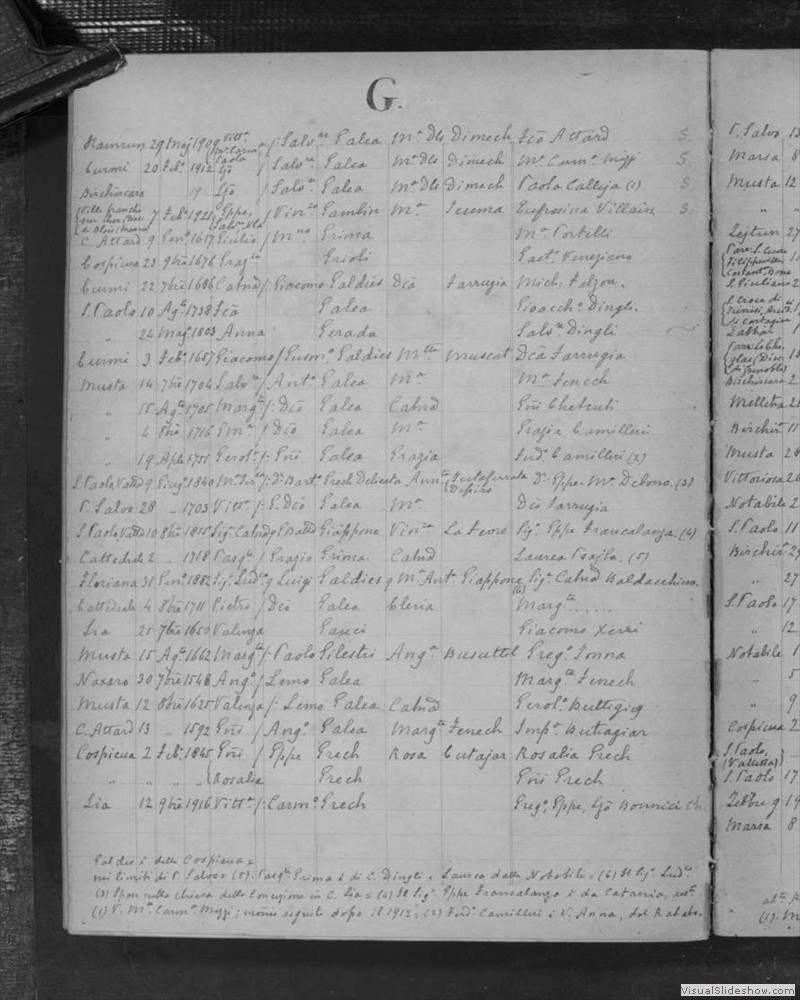 G.
Hamrun 29 Maj 1909 Vittª /: Salvre Galea Mª Dls Dimech Fcõ Attard S.
Curmi 20 Febº 1912 Gjõ / Salvre Galea Mª Dls Dimech Mª Carmª Mizzi S.
Birchircara 19 Gjõ / Salvre Galea Mª Dls Dimech Paola Calleja (1) S.
7 Febº 1921 Gppe, / Vinza Gambin Mª Eufrosina Villain S.
C. Attard 9 Genº 1657 Giulio / Mno Grima Mª Portelli
Cospicua 23 9bre 1676 Grazª Grioli Gaetº Veneziano
Curmi 22 7bre 1686 Catnã /: Giacomo Galdies Dcã Farrugia Mich: Falzon.
S. Paolo 10 Agto 1738 Fcã Galea Gioacchº Dingli.
" 24 Magº 1803 Anna Gerada Salvre Dingli
Curmi 3 Febº 1657 Giacomo / Galdies Mtta Muscat Dcã Farrugia
Musta 14 7bre 1704 Salvre / Antº Galea Mª Mª Fenech
" 15 Agto 1705 Margta /: Dcõ Galea Catnã Gñi Chetcuti
" 4 8bre 1716 Gmª / Dcõ Galea Mª Grazia Camilleri
" 19 Aple 1751 Gerolº /: Gñi Galea Grazia Ferdº Camilleri (2)
S. Paolo Vattª 9 Giugº 1840 /: Dr Bartº Grech Delicata Annª Testaferrata Dr Gppe-Mª Debono. (3)
P. Salvo 28 " 1703 Vittª /: S. Dcõ Galea Mª Dcõ Farrugia
S. Paolo Vattª 10 8bre 1815 Sigª Catnã q Battª Giappone Vinza La Ferre Sigr Gppe Francalanza. (4)
Cattedrale 2 " 1718 Pasqª / Grazio Grima Catnã Laurea Psajla. (5)
Floriana 31 Genº 1882 Sigr Ludº q Luigi Galdies q Mª Antª Giappone Sigª Catnã Baldacchino.
(6)
Cattedrale 4 8bre 1711 Pietro / Dcõ Galea Cleria Margta ......
Lia 25 7bre 1650 Valenza Gauci Giacomo Xerri
Musta 15 Agto 1662 Margta /: Paolo Gilestri Angª Busuttil Gregº Tonna
Naxaro 30 7bre 1548 Angº / Lemo Galea Margta Fenech
Musta 12 8bre 1625 Valenza /: Lemo Galea Catnã Gerolº Buttigieg
C. Attard 13 " 1592 Gñi / Angº Galea Margta Fenech Impª Buttagiar
Cospicua 2 Febº 1845 Gñi / Gppe Grech Rosa Cutajar Rosalia Grech
" " " " Rosalia Grech Gñi Grech
Lia 12 9bre 1916 Vittª /: Carmº Grech Gregº Gppe, Gjõ Bonnici Ch.
Galdes è della Cospicua =
nei limiti di P. Salvo = (5). Pasqª Grima è di C. Dingli e Laurea dalla Notabile. (6) Il Sigr Ludº
(3) Spon: nella chiesa della Concezione in C. Lia = (4) Il Sigr Gppe Francalanza è da Catania,
(1) V. Mª Carmª Mizzi; dopo il 1912. (2) Ferdº Camilleri: V. Anna, dal Rabato.
P. Salvo 13
Marsa 8
Musta 12
" "
Zejtun 27
S. Giuliano 2
Zabbar 1
Birchircara 2
Melleha 21
Birchirª 11
Musta 26
Vittoriosa 20
Notabile 2
S. Paolo 11
Birchirª 29
" 27
S. Paolo 17
" 12
Notabile 1
" 5
" 9
Cospicua 2
S. Paolo,
(Valletta)
S. Paolo 17
Zebbug 19
Marsa 8
VisualSlideshow.com